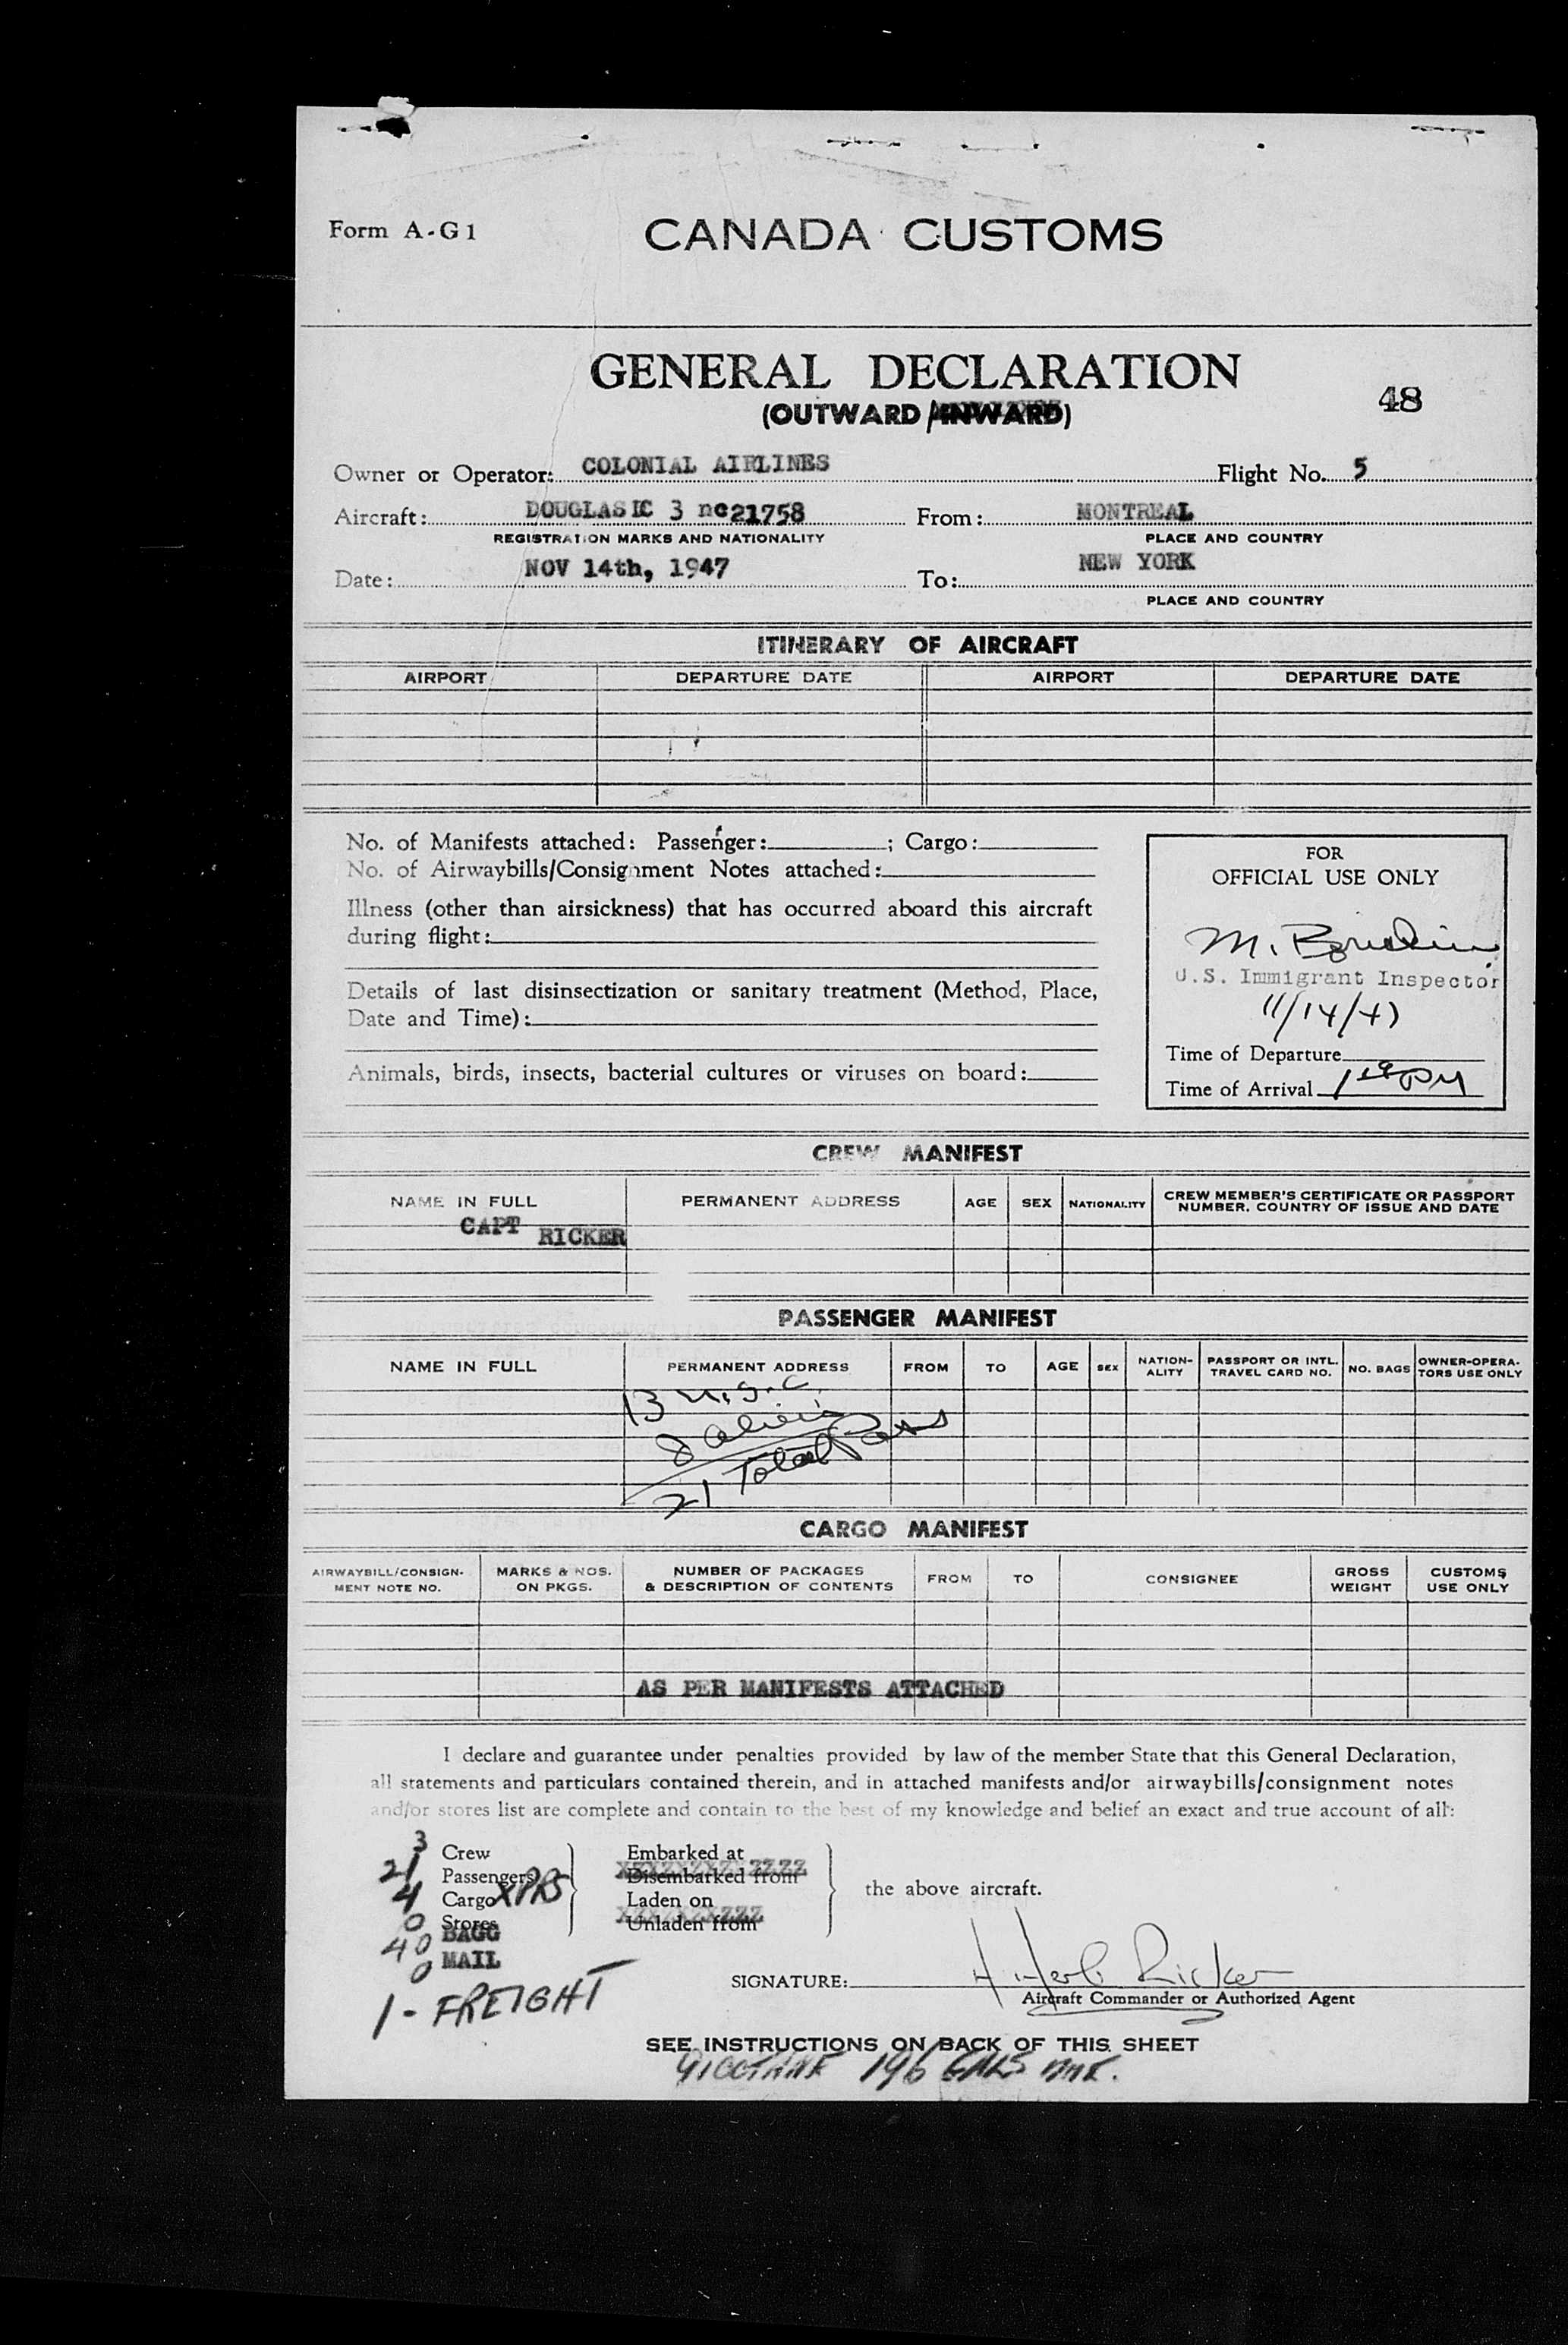 Form A-G1
CANADA CUSTOMS
GENERAL DECLARATION
(OUTWARD/INWARD)
48
Owner or Operator: COLONIAL AIRLINES Flight No. 5
Aircraft: DOUGLAS DC 3 nc21758 From: MONTREAL
REGISTRATION MARKS AND NATIONALITY PLACE AND COUNTRY
Date: NOV 14th, 1947 To: NEW YORK
PLACE AND COUNTRY
ITINERARY OF AIRCRAFT
AIRPORT DEPARTURE DATE AIRPORT DEPARTURE DATE
No. of Manifests attached: Passenger: ; Cargo:
No. of Airwaybills/Consignment Notes attached:
Illness (other than airsickness) that has occurred aboard this aircraft
during flight:
Details of last disinsectization or sanitary treatment (Method, Place,
Date and Time):
Animals, birds, insects, bacterial cultures or viruses on board:
FOR
OFFICIAL USE ONLY
M.
U.S. Immigrant Inspector
11/14/47
Time of Departure
Time of Arrival PM
CREW MANIFEST
NAME IN FULL PERMANENT ADDRESS AGE SEX NATIONALITY CREW MEMBER'S CERTIFICATE OR PASSPORT
NUMBER, COUNTRY OF ISSUE AND DATE
CAPT RICKER
PASSENGER MANIFEST
NAME IN FULL PERMANENT ADDRESS FROM TO AGE SEX NATION-
ALITY PASSPORT OR INTL.
TRAVEL CARD NO. NO. BAGS OWNER-OPERA-
TORS USE ONLY
13 U.S.C.
8 aliens
21 Total Pass
CARGO MANIFEST
AIRWAYBILL/CONSIGN-
MENT NOTE NO. MARKS & NOS.
ON PKGS. NUMBER OF PACKAGES
& DESCRIPTION OF CONTENTS FROM TO CONSIGNEE GROSS
WEIGHT CUSTOMS
USE ONLY
AS PER MANIFESTS ATTACHED
I declare and guarantee under penalties provided by law of the member State that this General Declaration,
all statements and particulars contained therein, and in attached manifests and/or airwaybills/consignment notes
and/or stores list are complete and contain to the best of my knowledge and belief an exact and true account of all:
3 Crew
21 Passengers
4 Cargo XPRS
0 Stores
40 BAGG
0 MAIL
1 - FREIGHT
Embarked at
Disembarked from
Laden on
Unladen from
the above aircraft.
SIGNATURE: H Herb Ricker
Aircraft Commander or Authorized Agent
SEE INSTRUCTIONS ON BACK OF THIS SHEET
91 OCTANE 196 GALS